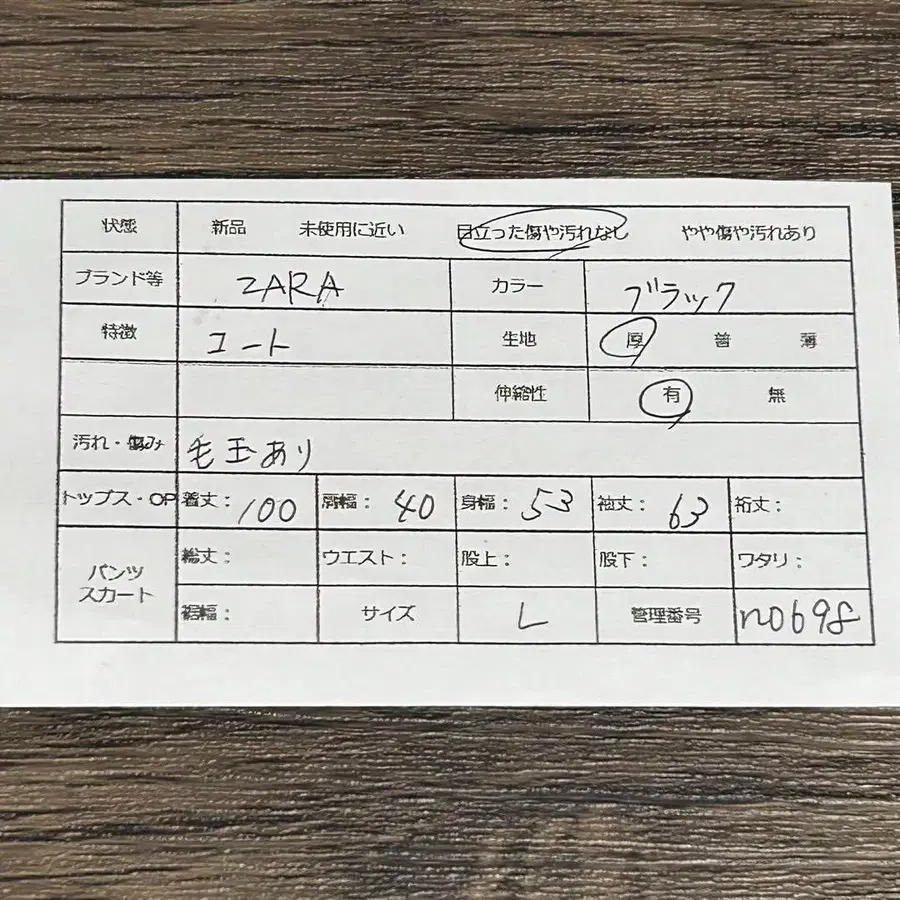 状感 新品 未使用に近い 目立った傷や汚れなし やや傷や汚れあり
ブランド等 ZARA カラー ブラック
特徴 コート 生地 厚 普 薄
伸縮性 有 無
汚れ・傷み 毛玉あり
トップス・OP 着丈: 100 肩幅: 40 身幅: 53 袖丈: 63 裄丈:
パンツ スカート 総丈: ウエスト: 股上: 股下: ワタリ:
裾幅: サイズ L 管理番号 n0698